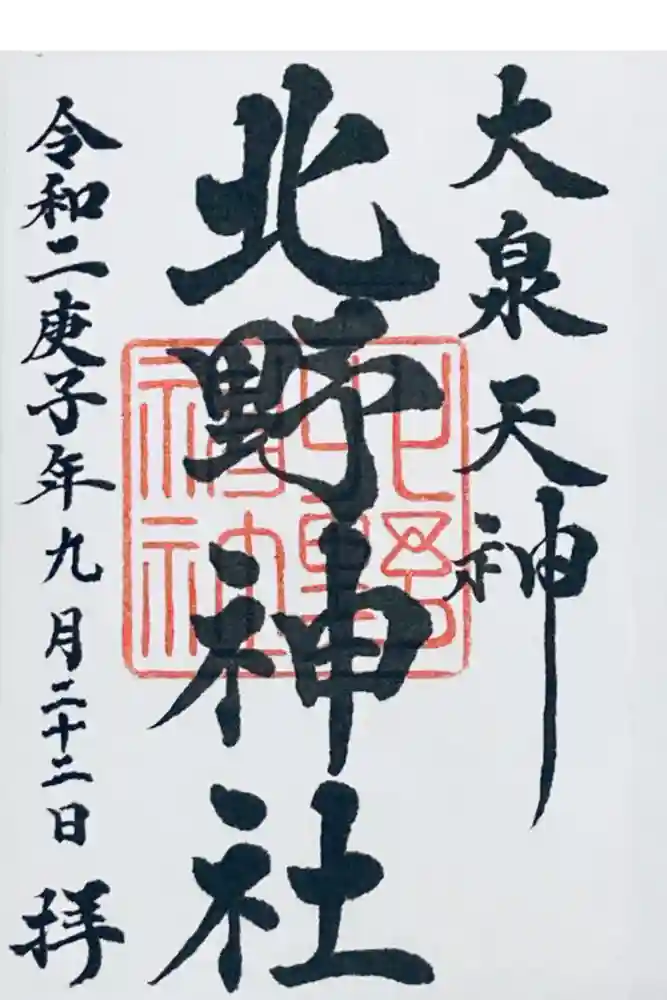 大泉天神
北野神社
北野
神社
令和二庚子年九月二十二日 拝